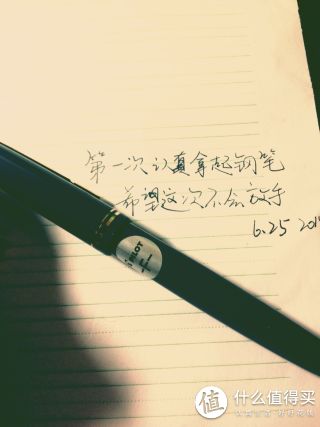 第一次认真拿起钢笔
希望这次不会放手
6.25 201
PILOT
值 什么值得买